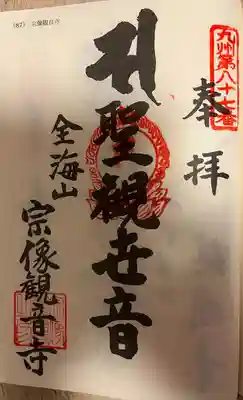 (87) 宗像観音寺
九州第八十七番
奉拝
聖観世音
金海山
宗像観音寺